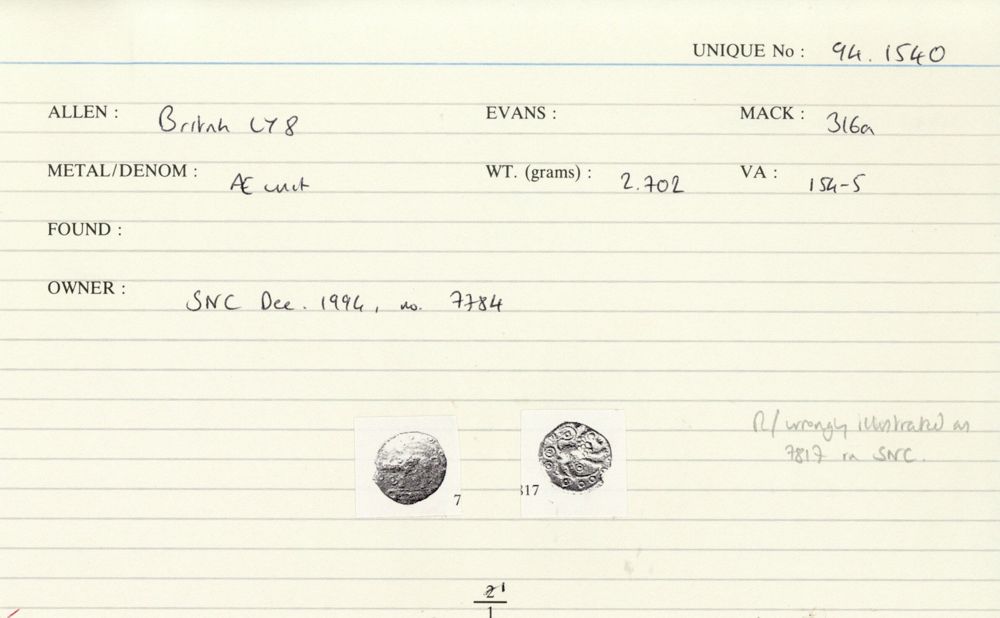 UNIQUE No : 94.1540
ALLEN : British LY8 EVANS : MACK : 316a
METAL/DENOM : Æ unit WT. (grams) : 2.702 VA : 154-5
FOUND :
OWNER : SNC Dec. 1994, no. 7784
R/ wrongly illustrated as
7817 in SNC.
7 817
1
1